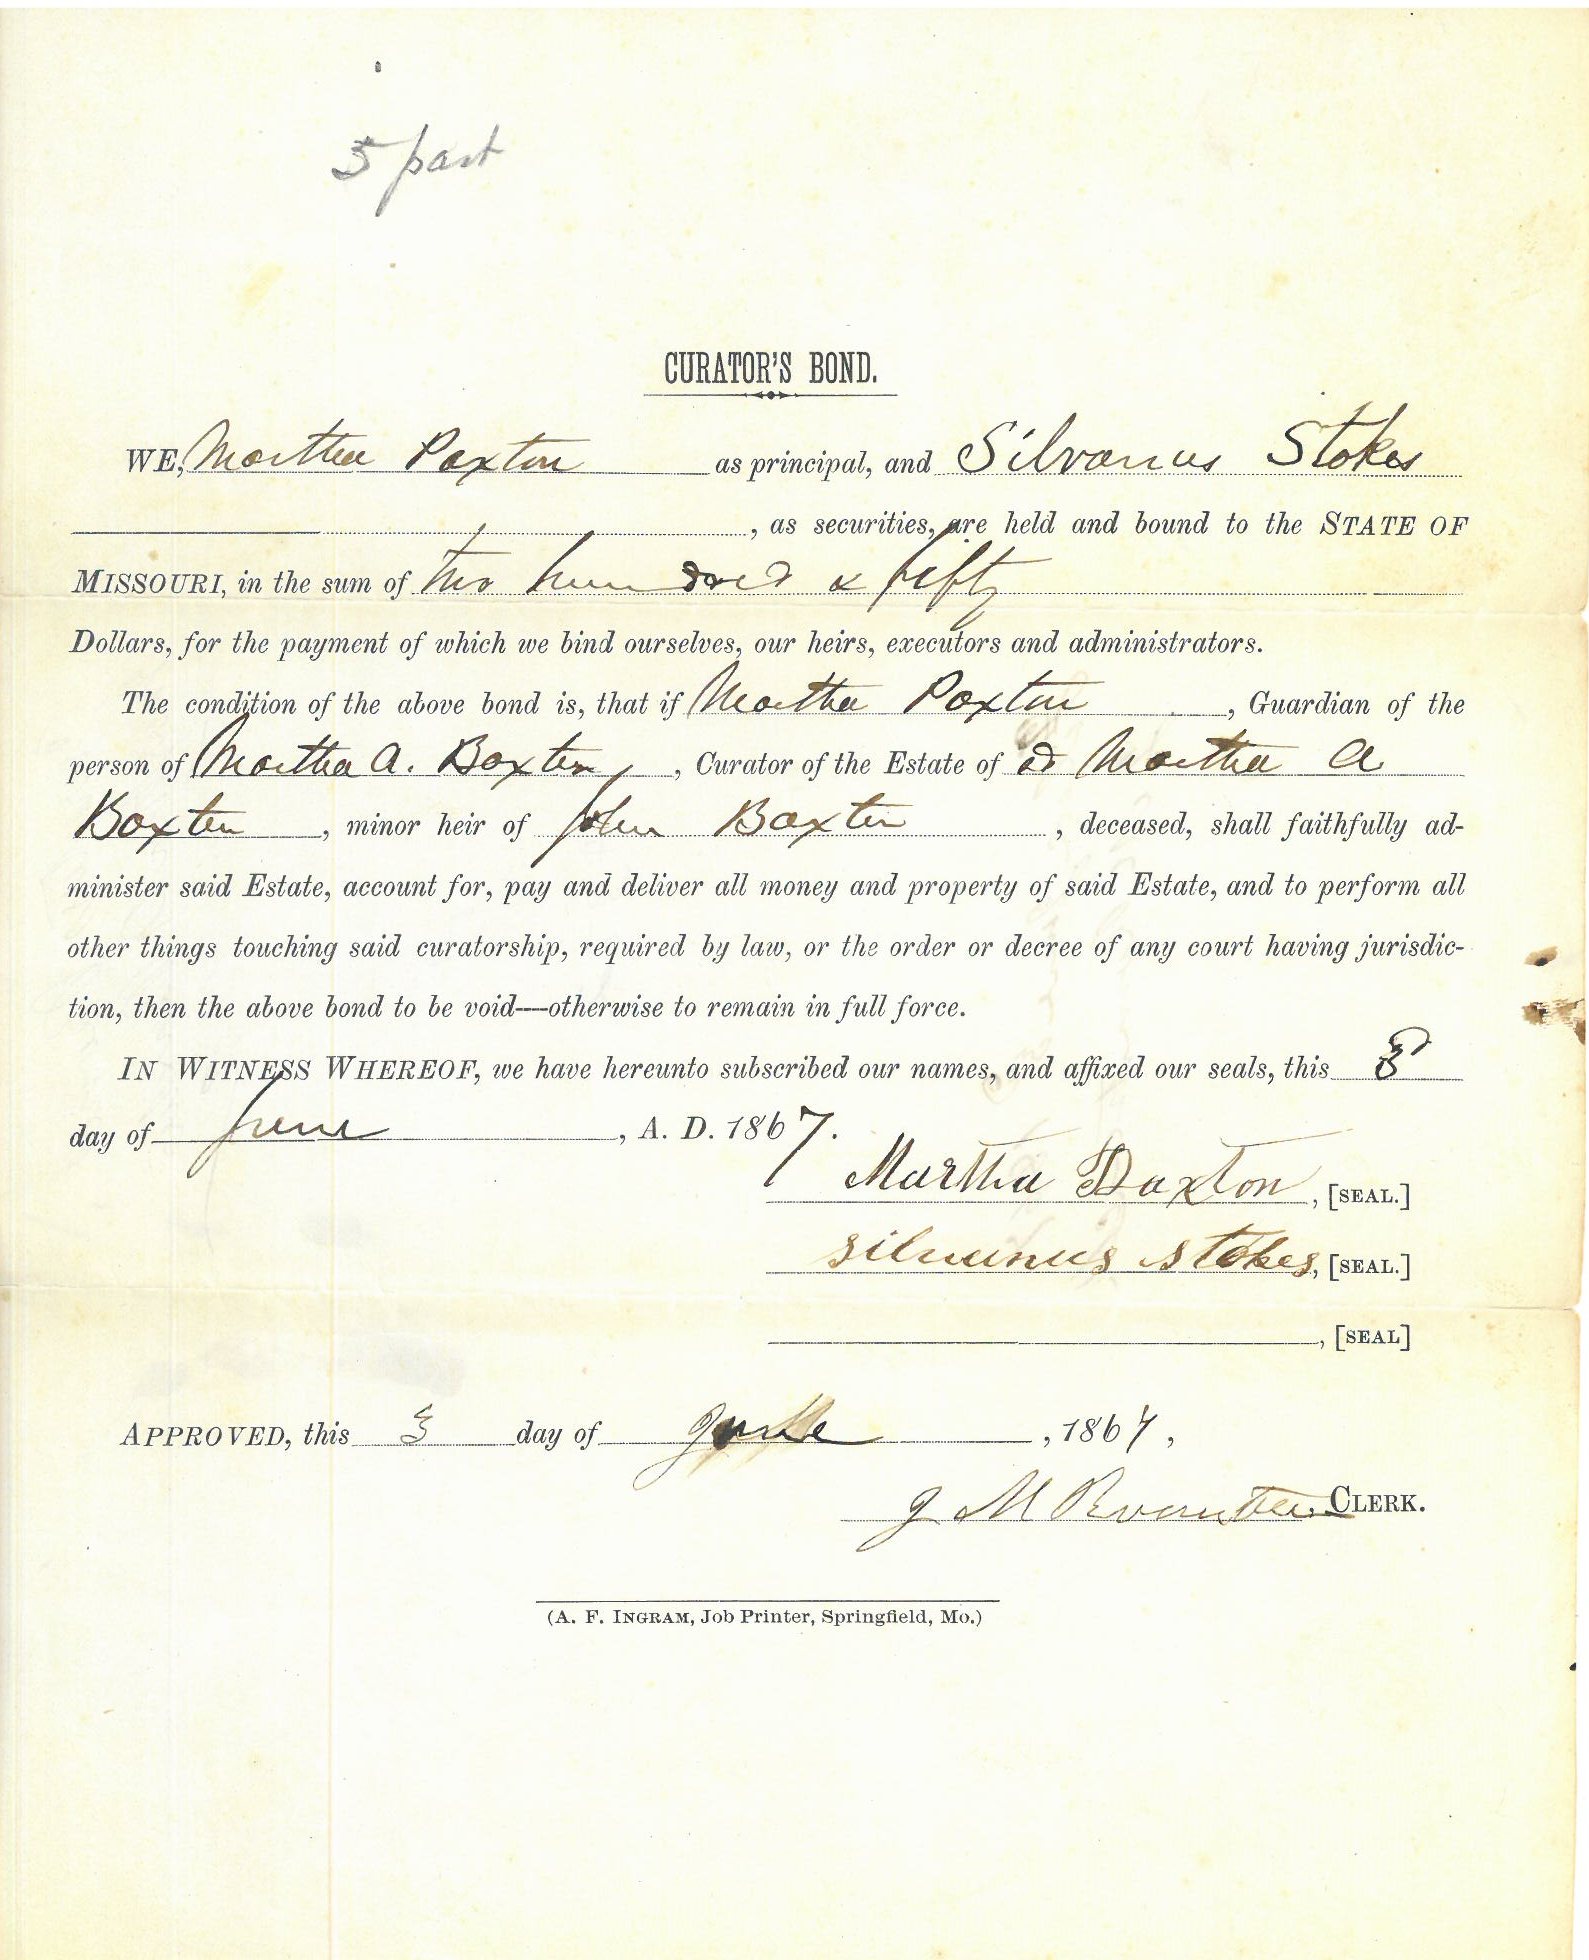 5 part
CURATOR'S BOND.
WE, Martha Paxton as principal, and Silvanus Stokes
, as securities, are held and bound to the STATE OF
MISSOURI, in the sum of two hundred & fifty
Dollars, for the payment of which we bind ourselves, our heirs, executors and administrators.
The condition of the above bond is, that if Martha Paxton , Guardian of the
person of Martha A. Baxter , Curator of the Estate of Martha A
Baxter , minor heir of John Baxter , deceased, shall faithfully ad-
minister said Estate, account for, pay and deliver all money and property of said Estate, and to perform all
other things touching said curatorship, required by law, or the order or decree of any court having jurisdic-
tion, then the above bond to be void—otherwise to remain in full force.
IN WITNESS WHEREOF, we have hereunto subscribed our names, and affixed our seals, this 3
day of June , A. D. 1867.
Martha Paxton , [SEAL.]
Silvanus Stokes, [SEAL.]
, [SEAL]
APPROVED, this 3 day of June , 1867,
J M CLERK.
(A. F. INGRAM, Job Printer, Springfield, Mo.)